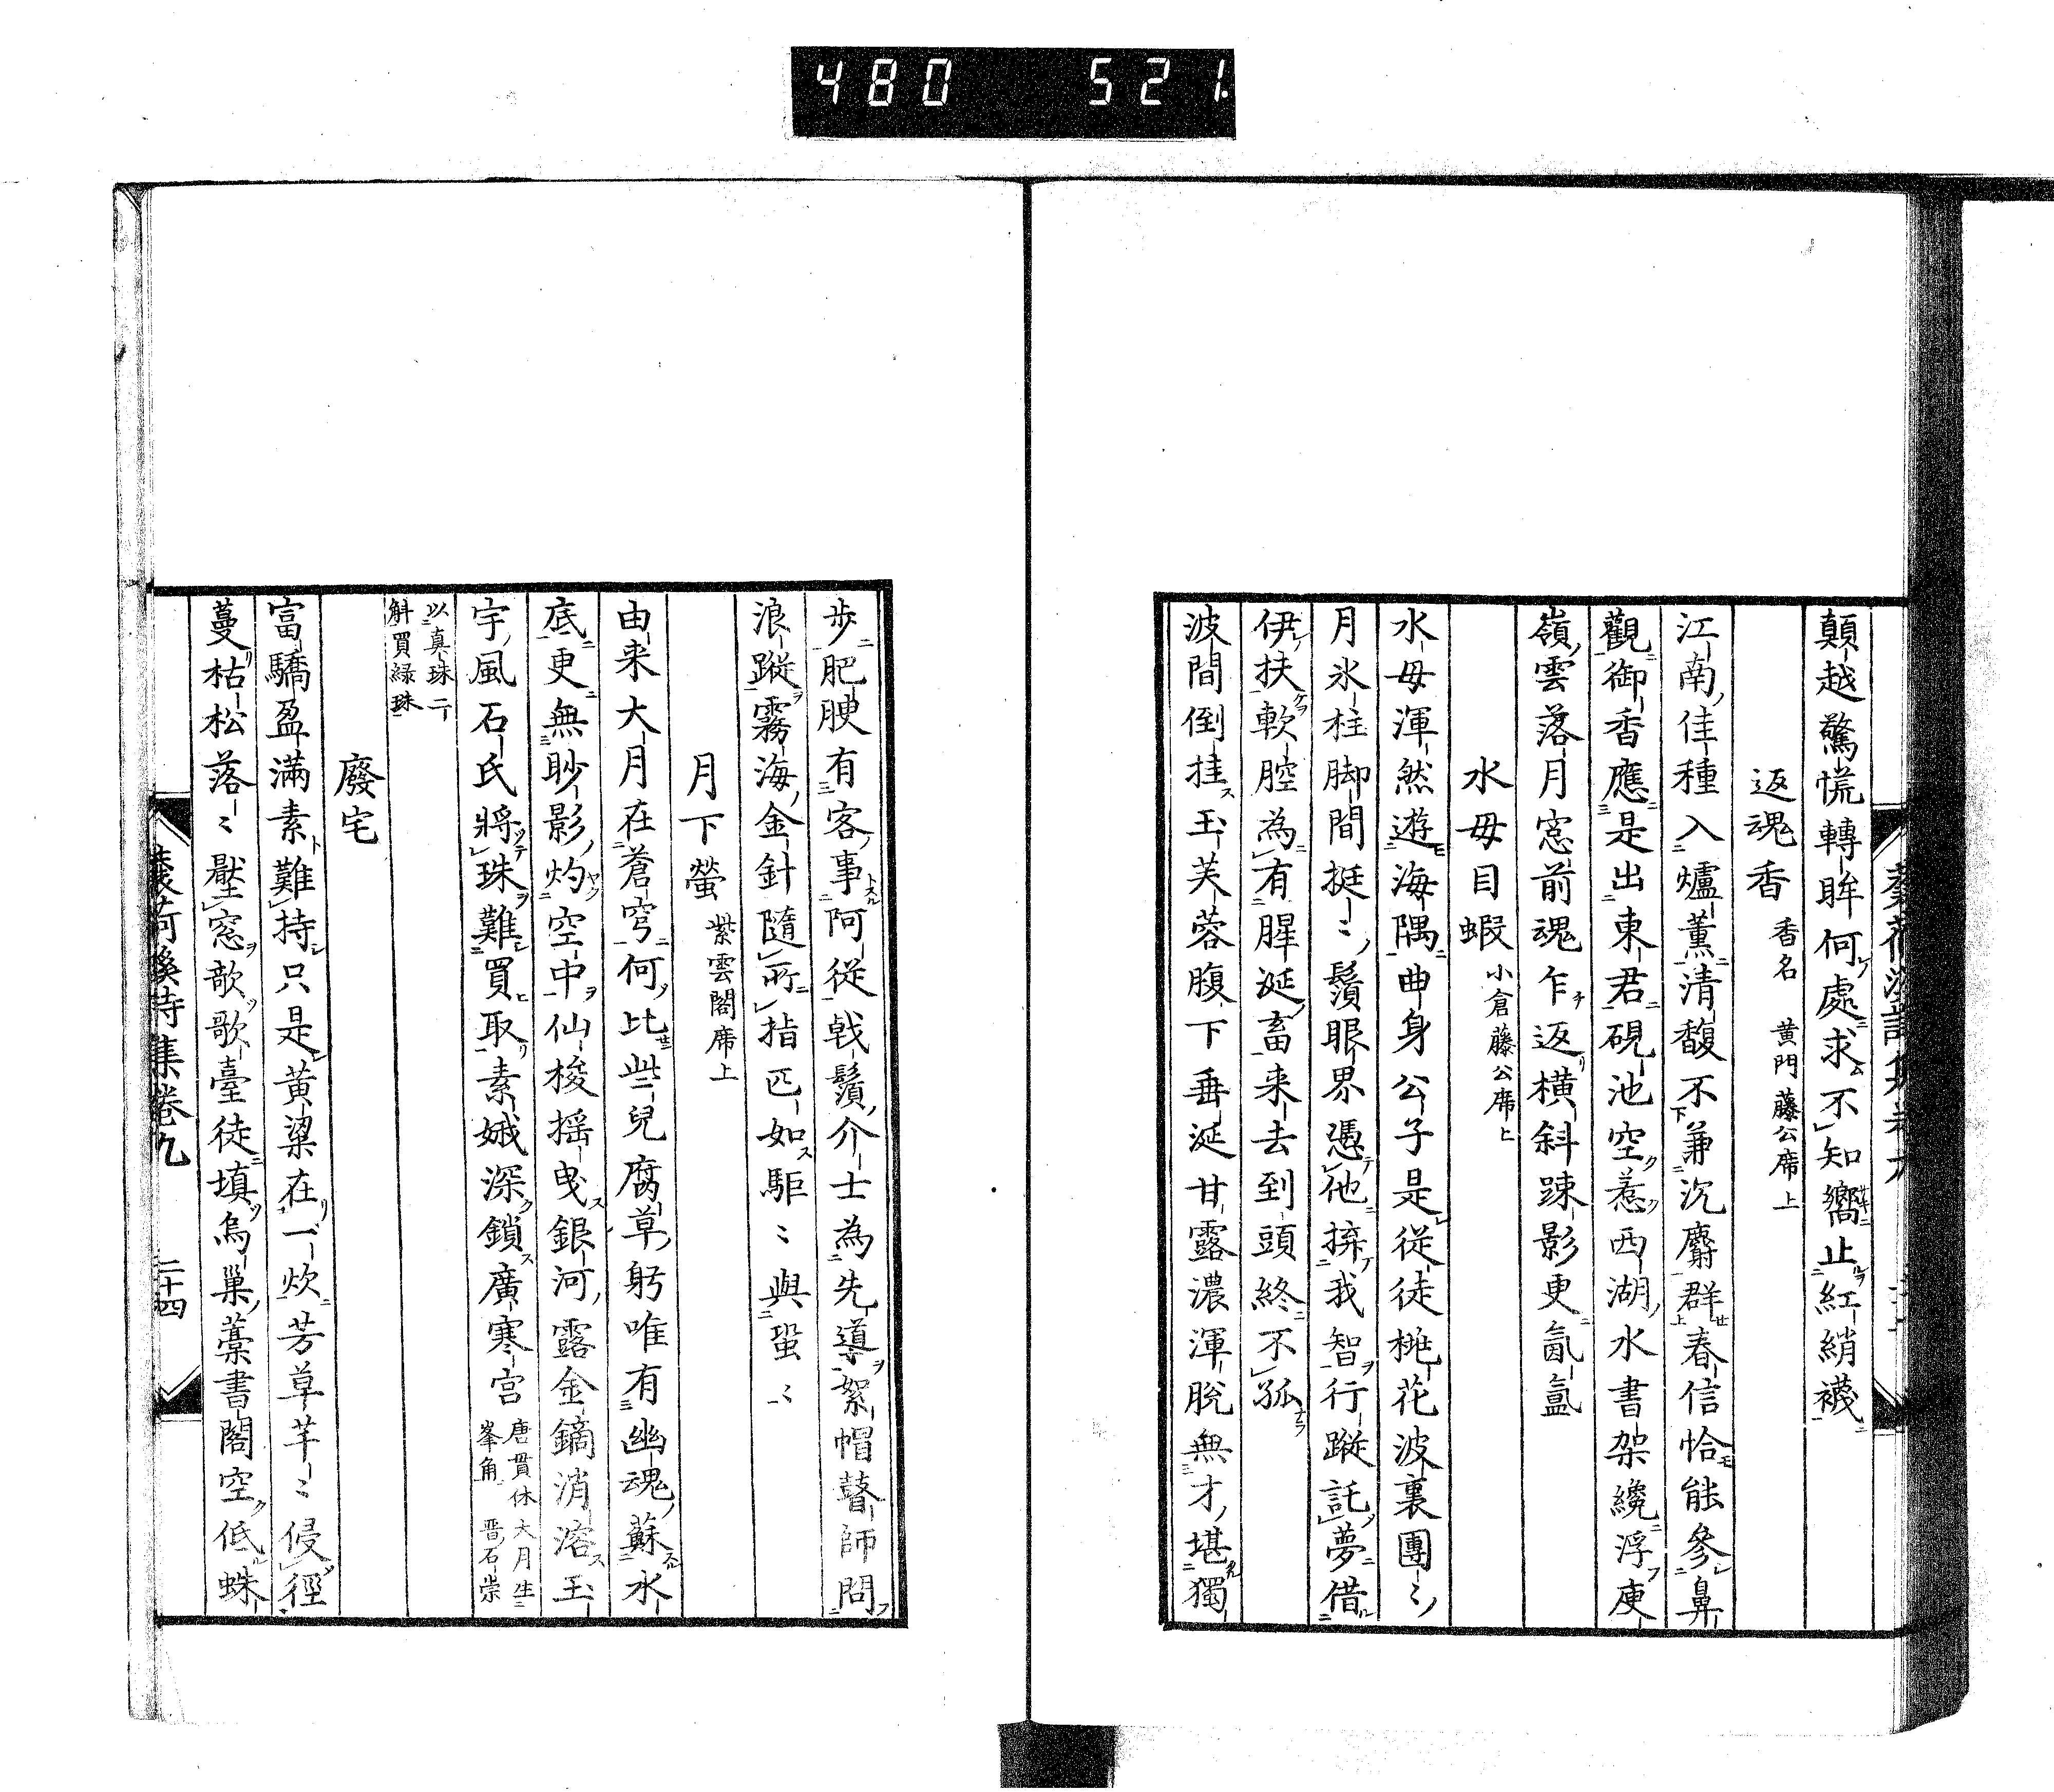 480 521
顛越驚慌轉眸何處求不知嚮止紅綃襪
返魂香 香名 黄門藤公席上
江南佳種入爐薫清馥不兼沉麝群春信恰能參鼻
觀御香應是出東君硯池空惹西湖水書架纔浮庾
嶺雲落月窓前魂乍返橫斜踈影更氤氳
水母目蝦 小倉藤公席上
水母渾然遊海隅曲身公子是從徒桃花波裏團〻
月氷柱脚間挺〻鬚眼界憑他擠我智行蹤託夢借
伊扶軟腔為有腥涎畜来去到頭終不孤
波間倒挂玉芙蓉腹下垂涎甘露濃渾脫無才堪獨
歩肥腴有客事阿從戟鬚介士為先導絮帽瞽師問
浪蹤霧海金針隨所指匹如駏〻與蛩〻
月下螢 紫雲閣席上
由来大月在蒼穹何比些兒腐草躬唯有幽魂蘇水
底更無眇影灼空中仙梭揺曳銀河露金鏑消溶玉
宇風石氏將珠難買取素娥深鎖廣寒宮 唐貫休大月生峯角 晋石崇
以真珠二斛買緑珠
廢宅
富驕盈滿素難持只是黄粱在一炊芳草芊〻侵徑
蔓枯松落〻壓窓欹歌臺徒塡烏巢藁書閣空低蛛
集卷九 二十四